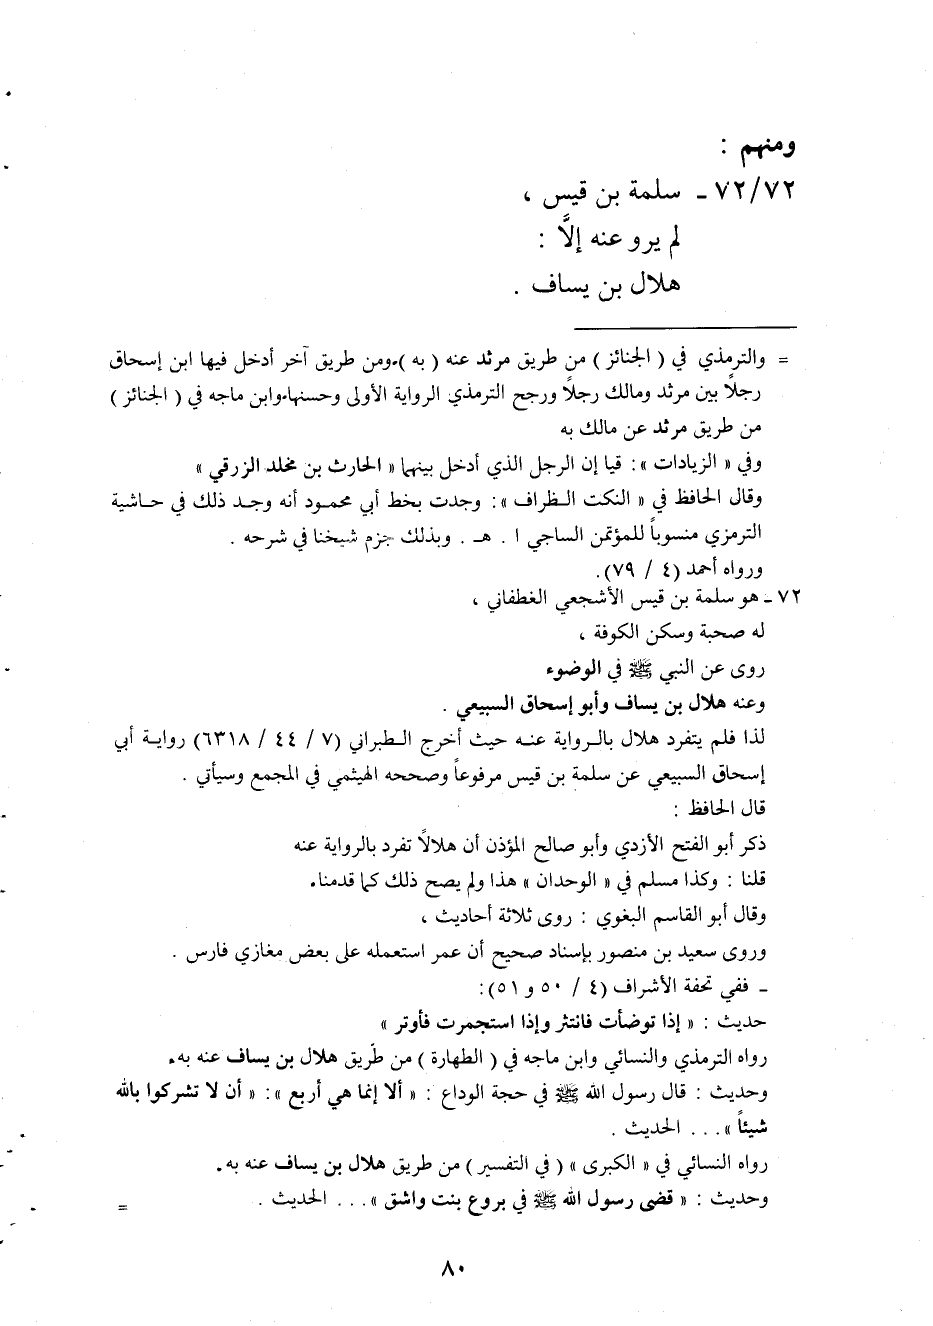 ومنهم :
٧٢/٧٢ ـ سلمة بن قيس ،
لم يرو عنه إلَّا :
هلال بن يساف .
= والترمذي في ( الجنائز ) من طريق مرثد عنه ( به ). ومن طريق آخر أدخل فيها ابن إسحاق
رجلاً بين مرثد ومالك رجلاً ورجح الترمذي الرواية الأولى وحسنها. وابن ماجه في ( الجنائز )
من طريق مرثد عن مالك به
وفي « الزيادات »: قيا إن الرجل الذي أدخل بينهما « الحارث بن مخلد الزرقي »
وقال الحافظ في « النكت الظراف »: وجدت بخط أبي محمود أنه وجد ذلك في حاشية
الترمزي منسوباً للمؤتمن الساجي ا . هـ . وبذلك جزم شيخنا في شرحه .
ورواه أحمد (٤ / ٧٩).
٧٢ ـ هو سلمة بن قيس الأشجعي الغطفاني ،
له صحبة وسكن الكوفة ،
روى عن النبي ﷺ في الوضوء
وعنه هلال بن يساف وأبو إسحاق السبيعي .
لذا فلم يتفرد هلال بالرواية عنه حيث أخرج الطبراني (٧ / ٤٤ / ٦٣١٨) رواية أبي
إسحاق السبيعي عن سلمة بن قيس مرفوعاً وصححه الهيثمي في المجمع وسيأتي .
قال الحافظ :
ذكر أبو الفتح الأزدي وأبو صالح المؤذن أن هلالاً تفرد بالرواية عنه
قلنا : وكذا مسلم في « الوحدان » هذا ولم يصح ذلك كما قدمنا.
وقال أبو القاسم البغوي : روى ثلاثة أحاديث ،
وروى سعيد بن منصور بإسناد صحيح أن عمر استعمله على بعض مغازي فارس .
ـ ففي تحفة الأشراف (٤ / ٥٠ و ٥١):
حديث : « إذا توضأت فانتثر وإذا استجمرت فأوتر »
رواه الترمذي والنسائي وابن ماجه في ( الطهارة ) من طريق هلال بن يساف عنه به.
وحديث : قال رسول الله ﷺ في حجة الوداع : « ألا إنما هي أربع »: « أن لا تشركوا بالله
شيئاً » . . . الحديث .
رواه النسائي في « الكبرى » ( في التفسير ) من طريق هلال بن يساف عنه به.
وحديث : « قضى رسول الله ﷺ في بروع بنت واشق » . . . الحديث . =
٨٠